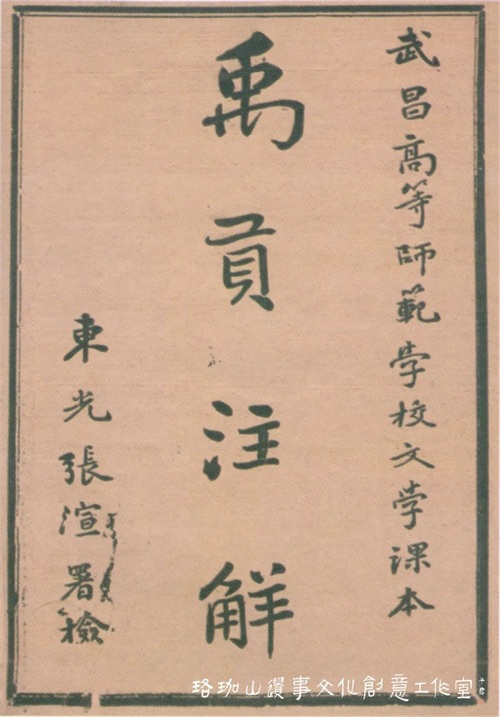 武昌高等师範学校文学課本
禹貢注解
東光張渲署檢
珞珈山鑽事文化創意工作室